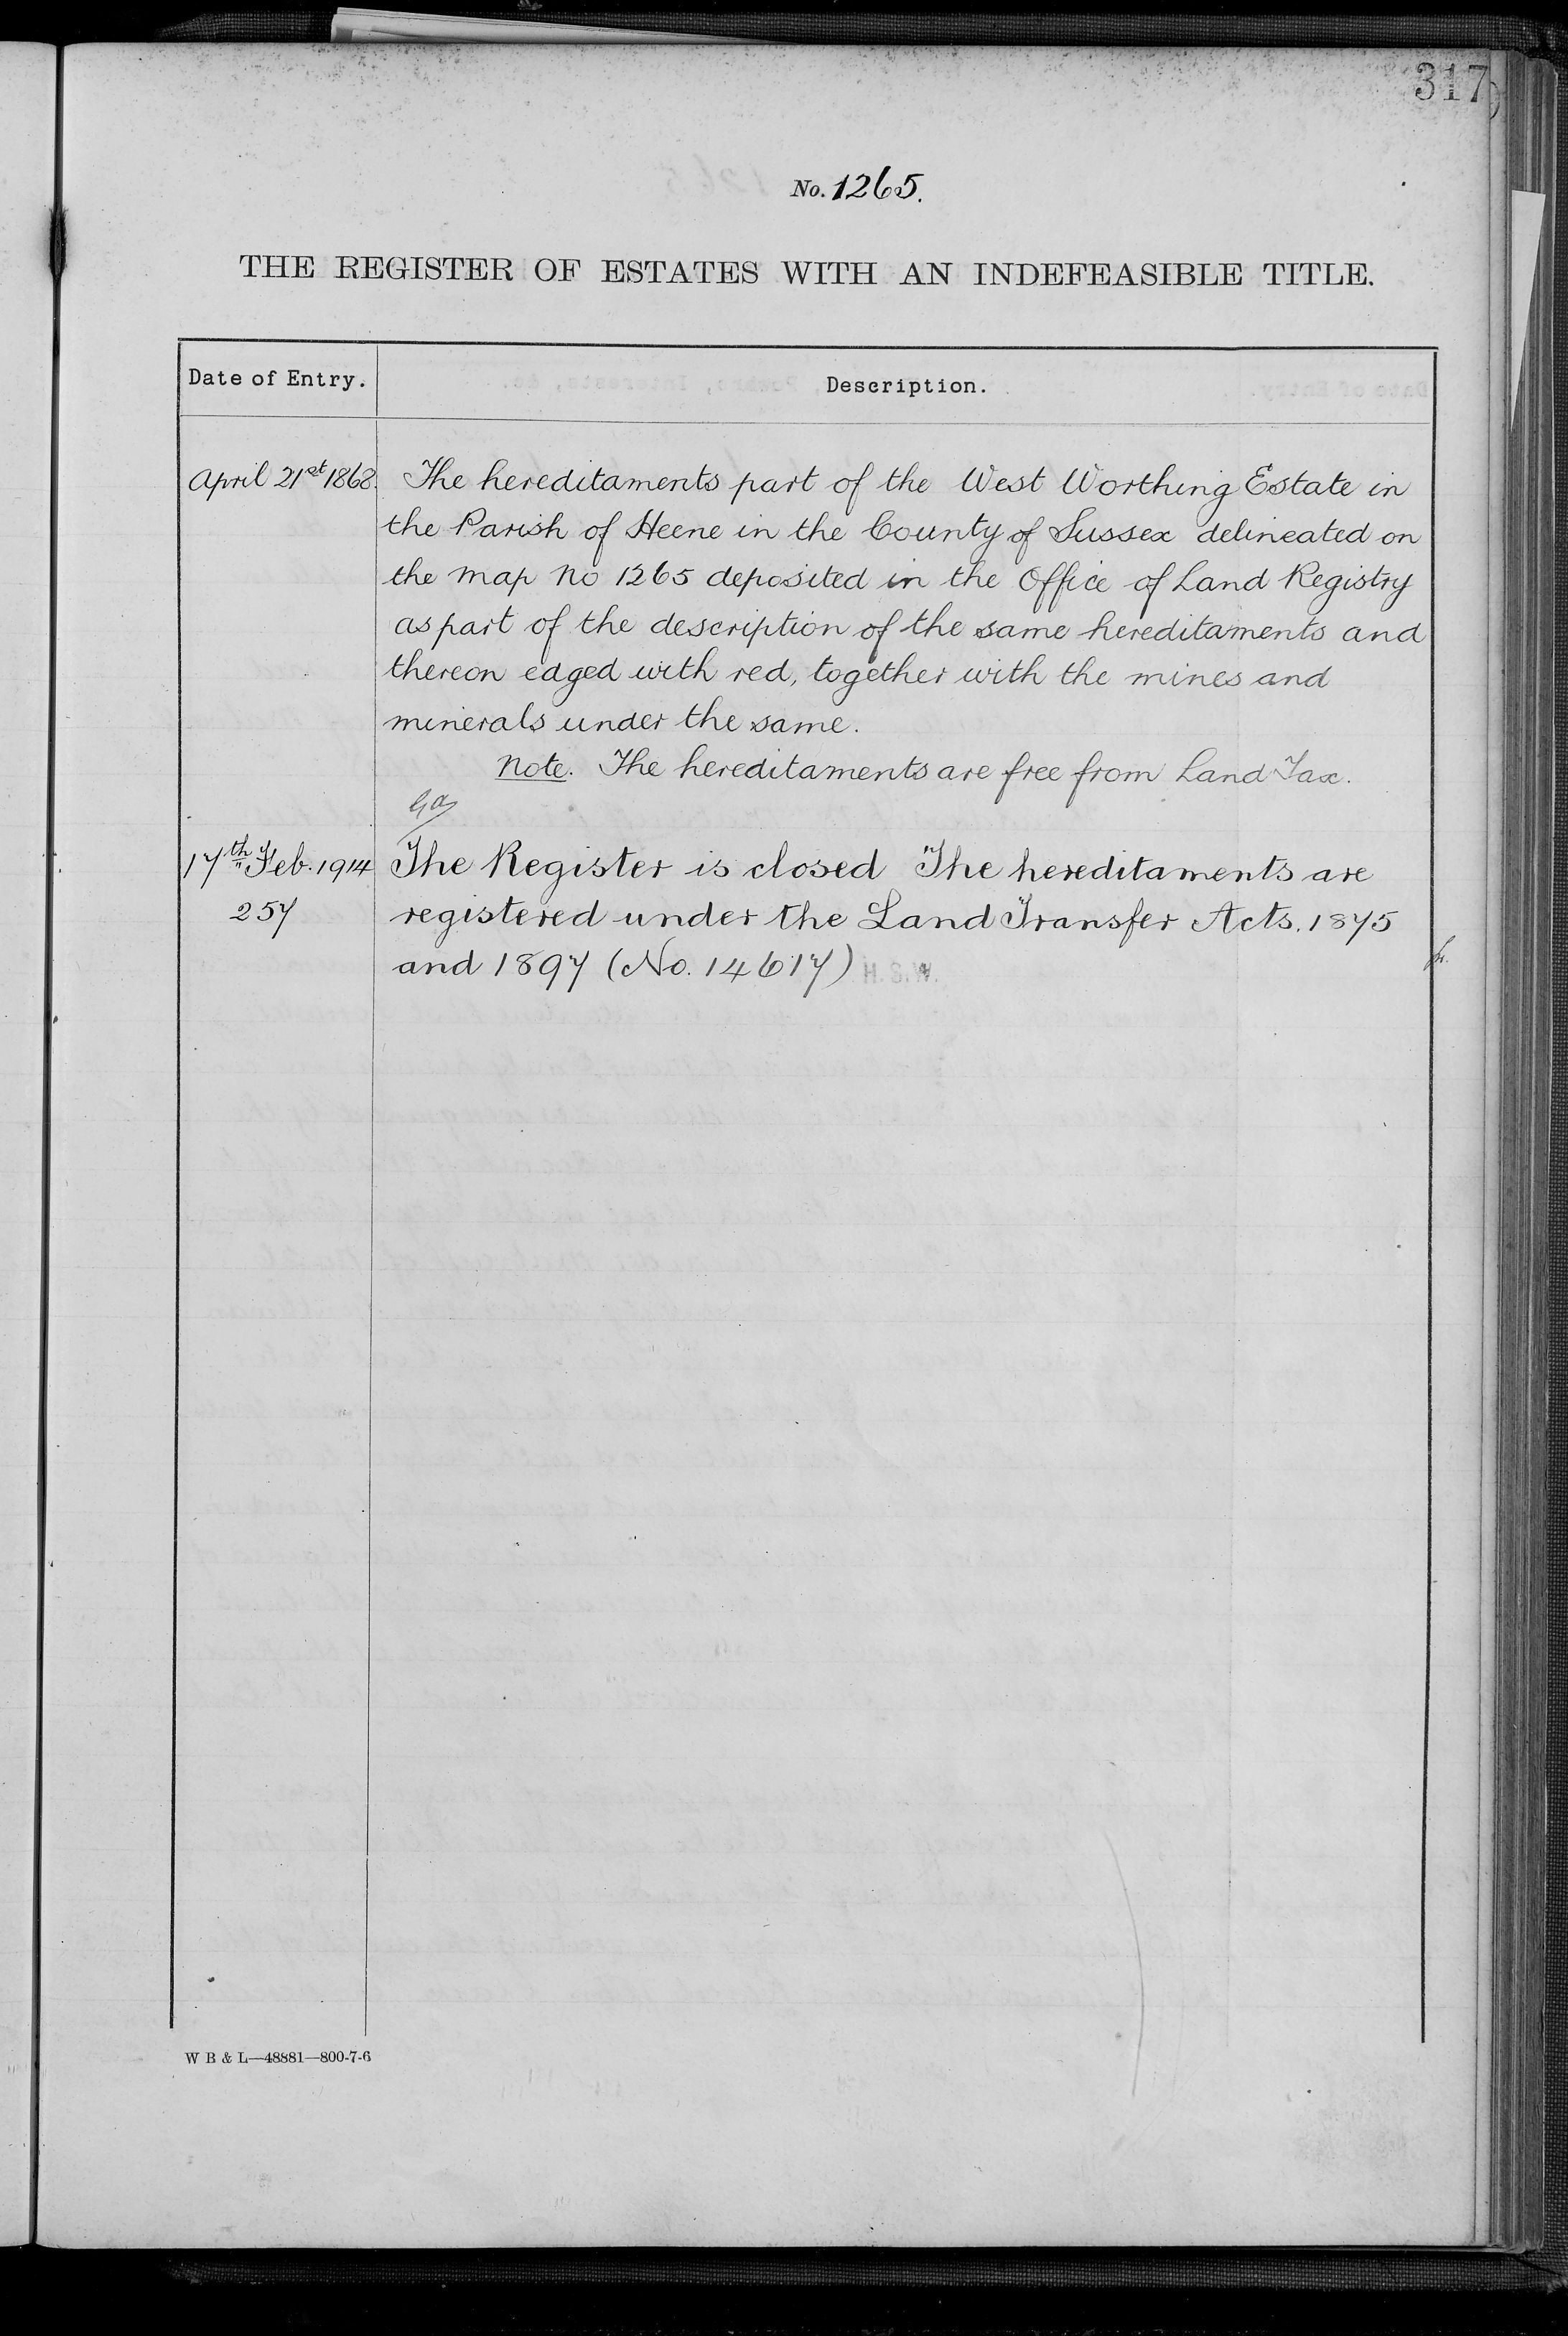 317
No. 1265.
THE REGISTER OF ESTATES WITH AN INDEFEASIBLE TITLE.
Date of Entry.
Description.
April 21st 1868.
The hereditaments part of the West Worthing Estate in
the Parish of Heene in the County of Sussex delineated on
the map No 1265 deposited in the Office of Land Registry
as part of the description of the same hereditaments and
thereon edged with red, together with the mines and
minerals under the same.
Note. The hereditaments are free from Land Tax.
17th Feb. 1914
257
The Register is closed The hereditaments are
registered under the Land Transfer Acts. 1875
and 1897 (No. 14617)
W B & L—48881—800-7-6